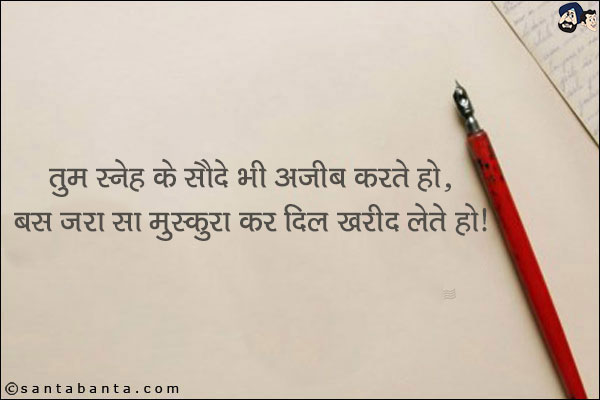 तुम स्नेह के सौदे भी अजीब करते हो,
बस जरा सा मुस्कुरा कर दिल खरीद लेते हो!
©santabanta.com